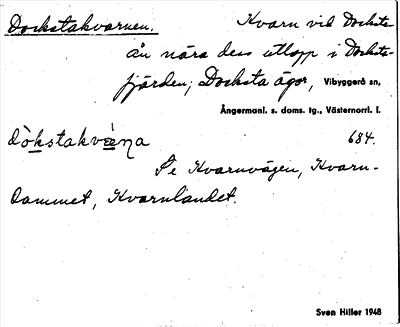 Dockstakvarnen. Kvarn vid Docksta-
ån nära dess utlopp i Docksta-
fjärden; Docksta ägor, Vibyggerå sn,
Ångermanl. s. doms. tg., Västernorrl. l.
dòkstakvàṇa 684.
Se Kvarnvägen, Kvarn-
dammet, Kvarnlandet.
Sven Hiller 1948